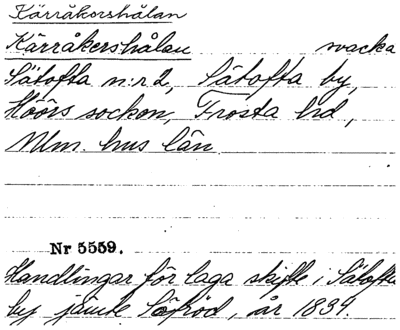 Kärråkorshålan
Kärråkershålan svacka
Sätofta n:r 2, Sätofta by,
Höörs socken, Frosta hd,
Mlm. hus län
Nr 5559.
Handlingar för laga skifte i Sätofta
by jämte Söfröd, år 1839.